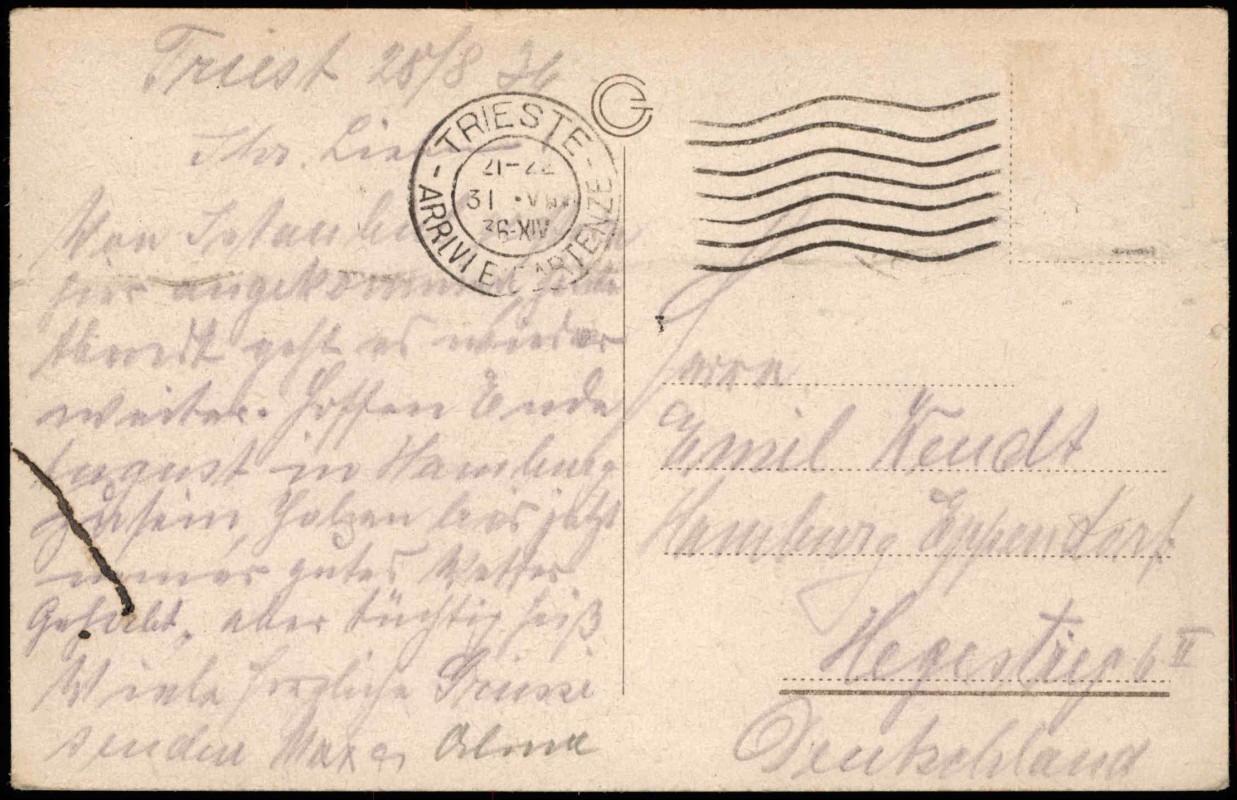 Triest 28/8 36
Ihr Lieben
Von Istanbul
hier angekommen, heute
Abend geht es wieder
weiter. Hoffen Ende
August in Hamburg
zu sein, haben bis jetzt
immer gutes Wetter
Gehabt, aber tüchtig heiß
Viele herzliche Grüsse
senden Max & Alma
TRIESTE
21-22
31 VIII
36-XIV
ARRIVI E PARTENZE
Herrn
Emil Wendt
Hamburg Eppendorf
Hegestieg 6 II
Deutschland